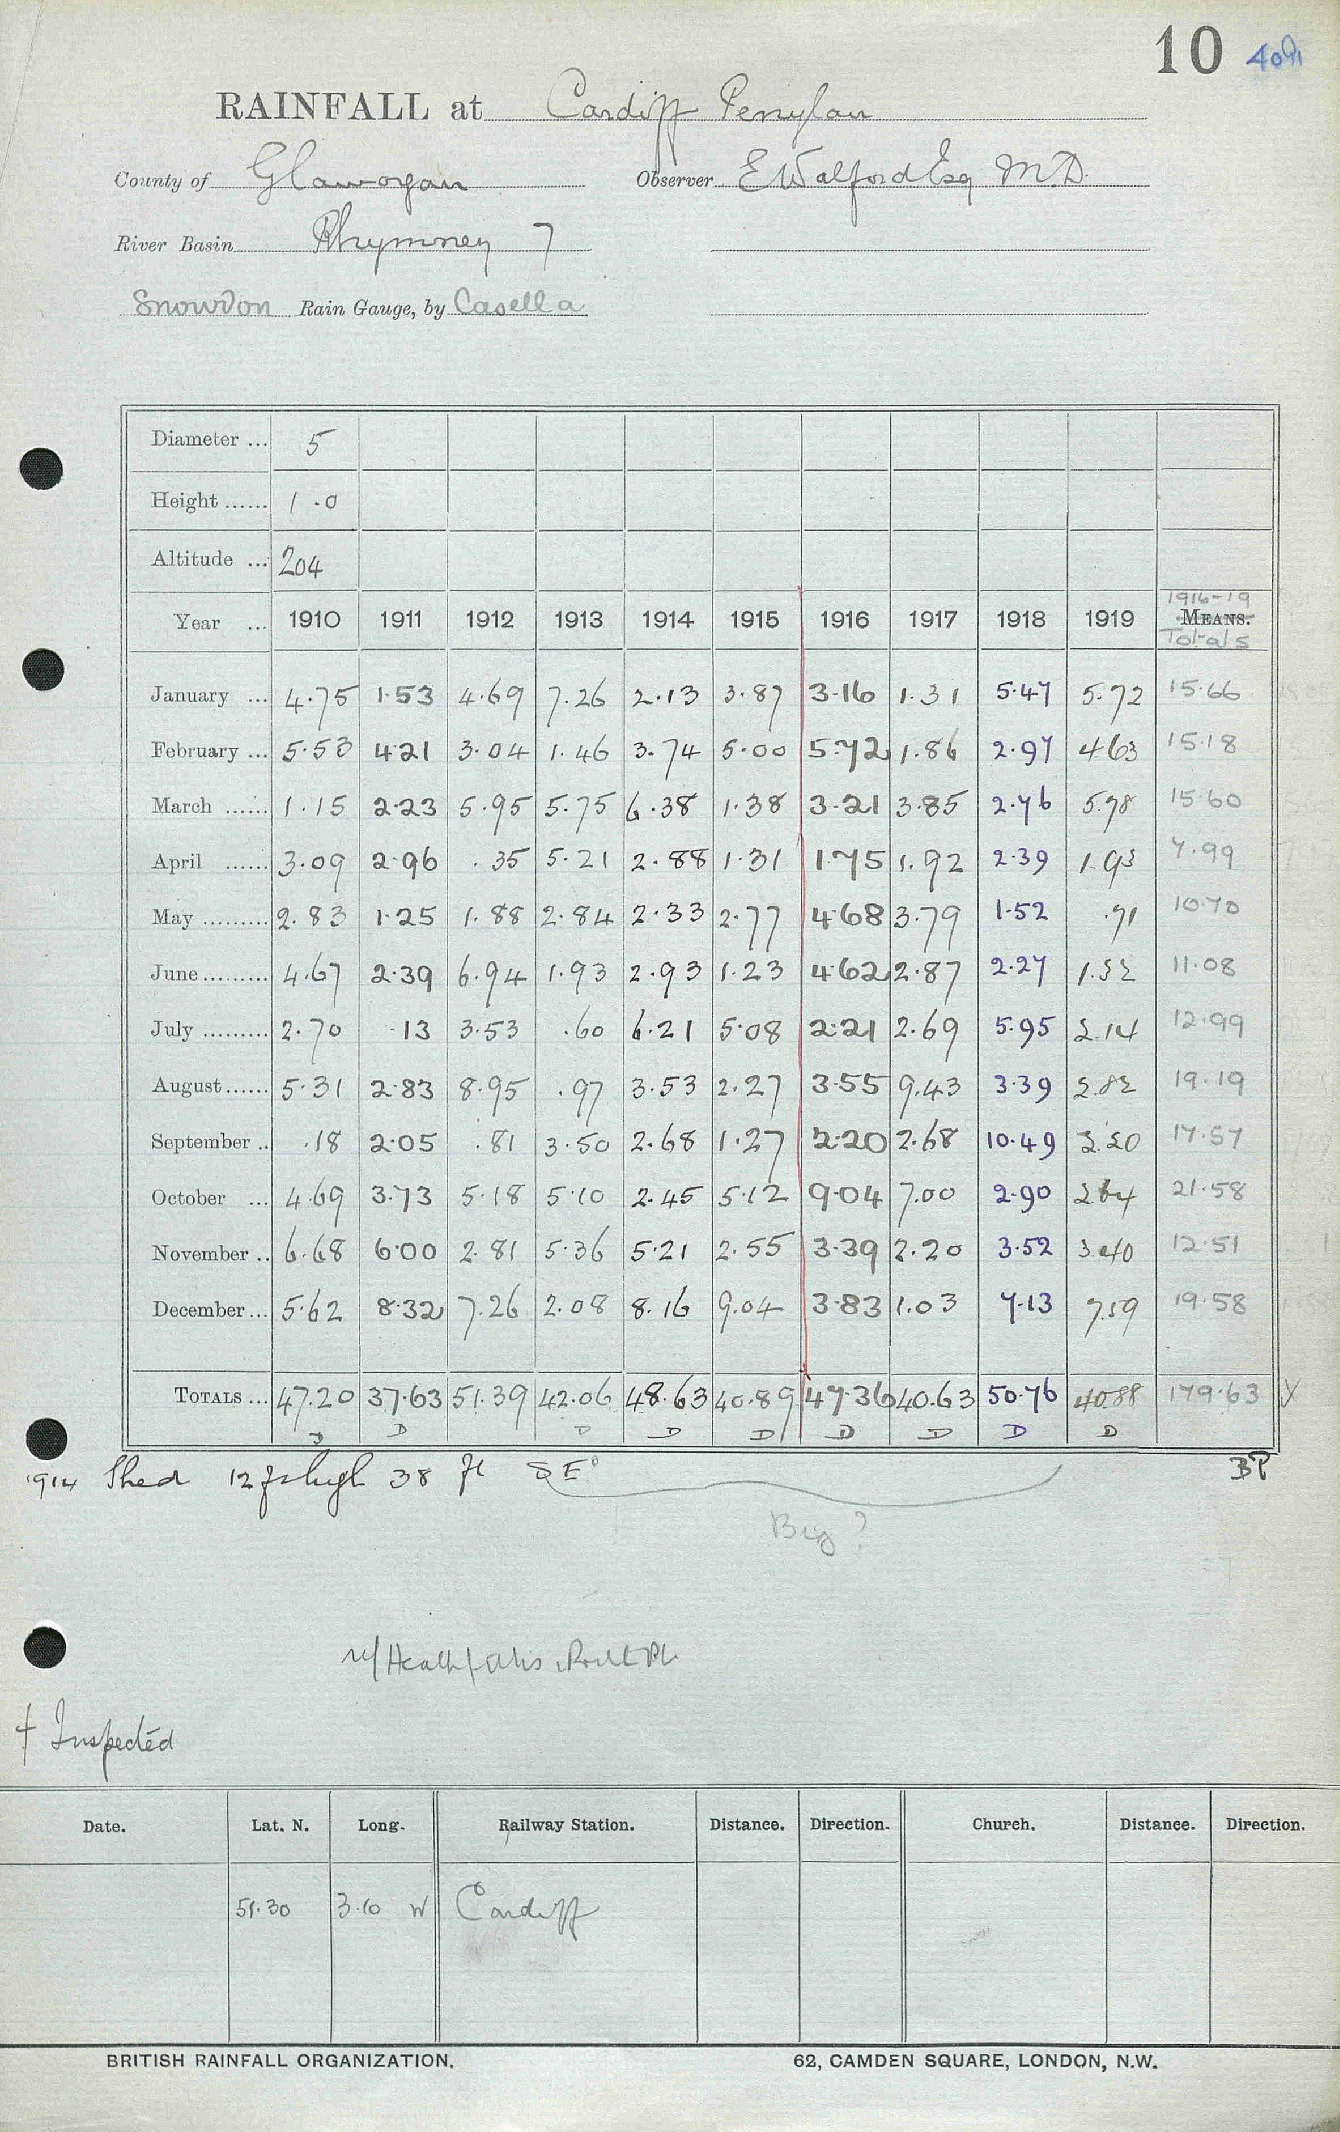 10 409
RAINFALL at Cardiff Penylan
County of Glamorgan Observer E Walford Esq M.D.
River Basin Rhymney 7
Snowdon Rain Gauge, by Casella
Diameter ... 5
Height ...... 1.0
Altitude ... 204
1916-19
Year ... 1910 1911 1912 1913 1914 1915 1916 1917 1918 1919 MEANS.
Totals
January ... 4.75 1.53 4.69 7.26 2.13 3.87 3.16 1.31 5.47 5.72 15.66
February ... 5.53 4.21 3.04 1.46 3.74 5.00 5.72 1.86 2.97 4.63 15.18
March ...... 1.15 2.23 5.95 5.75 6.38 1.38 3.21 3.85 2.76 5.78 15.60
April ...... 3.09 2.96 .35 5.21 2.88 1.31 1.75 1.92 2.39 1.93 7.99
May ......... 2.83 1.25 1.88 2.84 2.33 2.77 4.68 3.79 1.52 .71 10.70
June ......... 4.67 2.39 6.94 1.93 2.93 1.23 4.62 2.87 2.27 1.32 11.08
July ......... 2.70 .13 3.53 .60 6.21 5.08 2.21 2.69 5.95 2.14 12.99
August ...... 5.31 2.83 8.95 .97 3.53 2.27 3.55 9.43 3.39 2.82 19.19
September .. .18 2.05 .81 3.50 2.68 1.27 2.20 2.68 10.49 2.20 17.57
October ... 4.69 3.73 5.18 5.10 2.45 5.12 9.04 7.00 2.90 2.64 21.58
November .. 6.68 6.00 2.81 5.36 5.21 2.55 3.39 2.20 3.52 3.40 12.51
December ... 5.62 8.32 7.26 2.08 8.16 9.04 3.83 1.03 7.13 7.59 19.58
TOTALS ... 47.20 37.63 51.39 42.06 48.63 40.89 47.36 40.63 50.76 40.88 179.63 X
D D D D D D D D D
1914 Shed 12 ft high 38 ft SE BP
Big?
+ Inspected
Date. Lat. N. Long. Railway Station. Distance. Direction. Church. Distance. Direction.
51.30 3.10 W Cardiff
BRITISH RAINFALL ORGANIZATION. 62, CAMDEN SQUARE, LONDON, N.W.